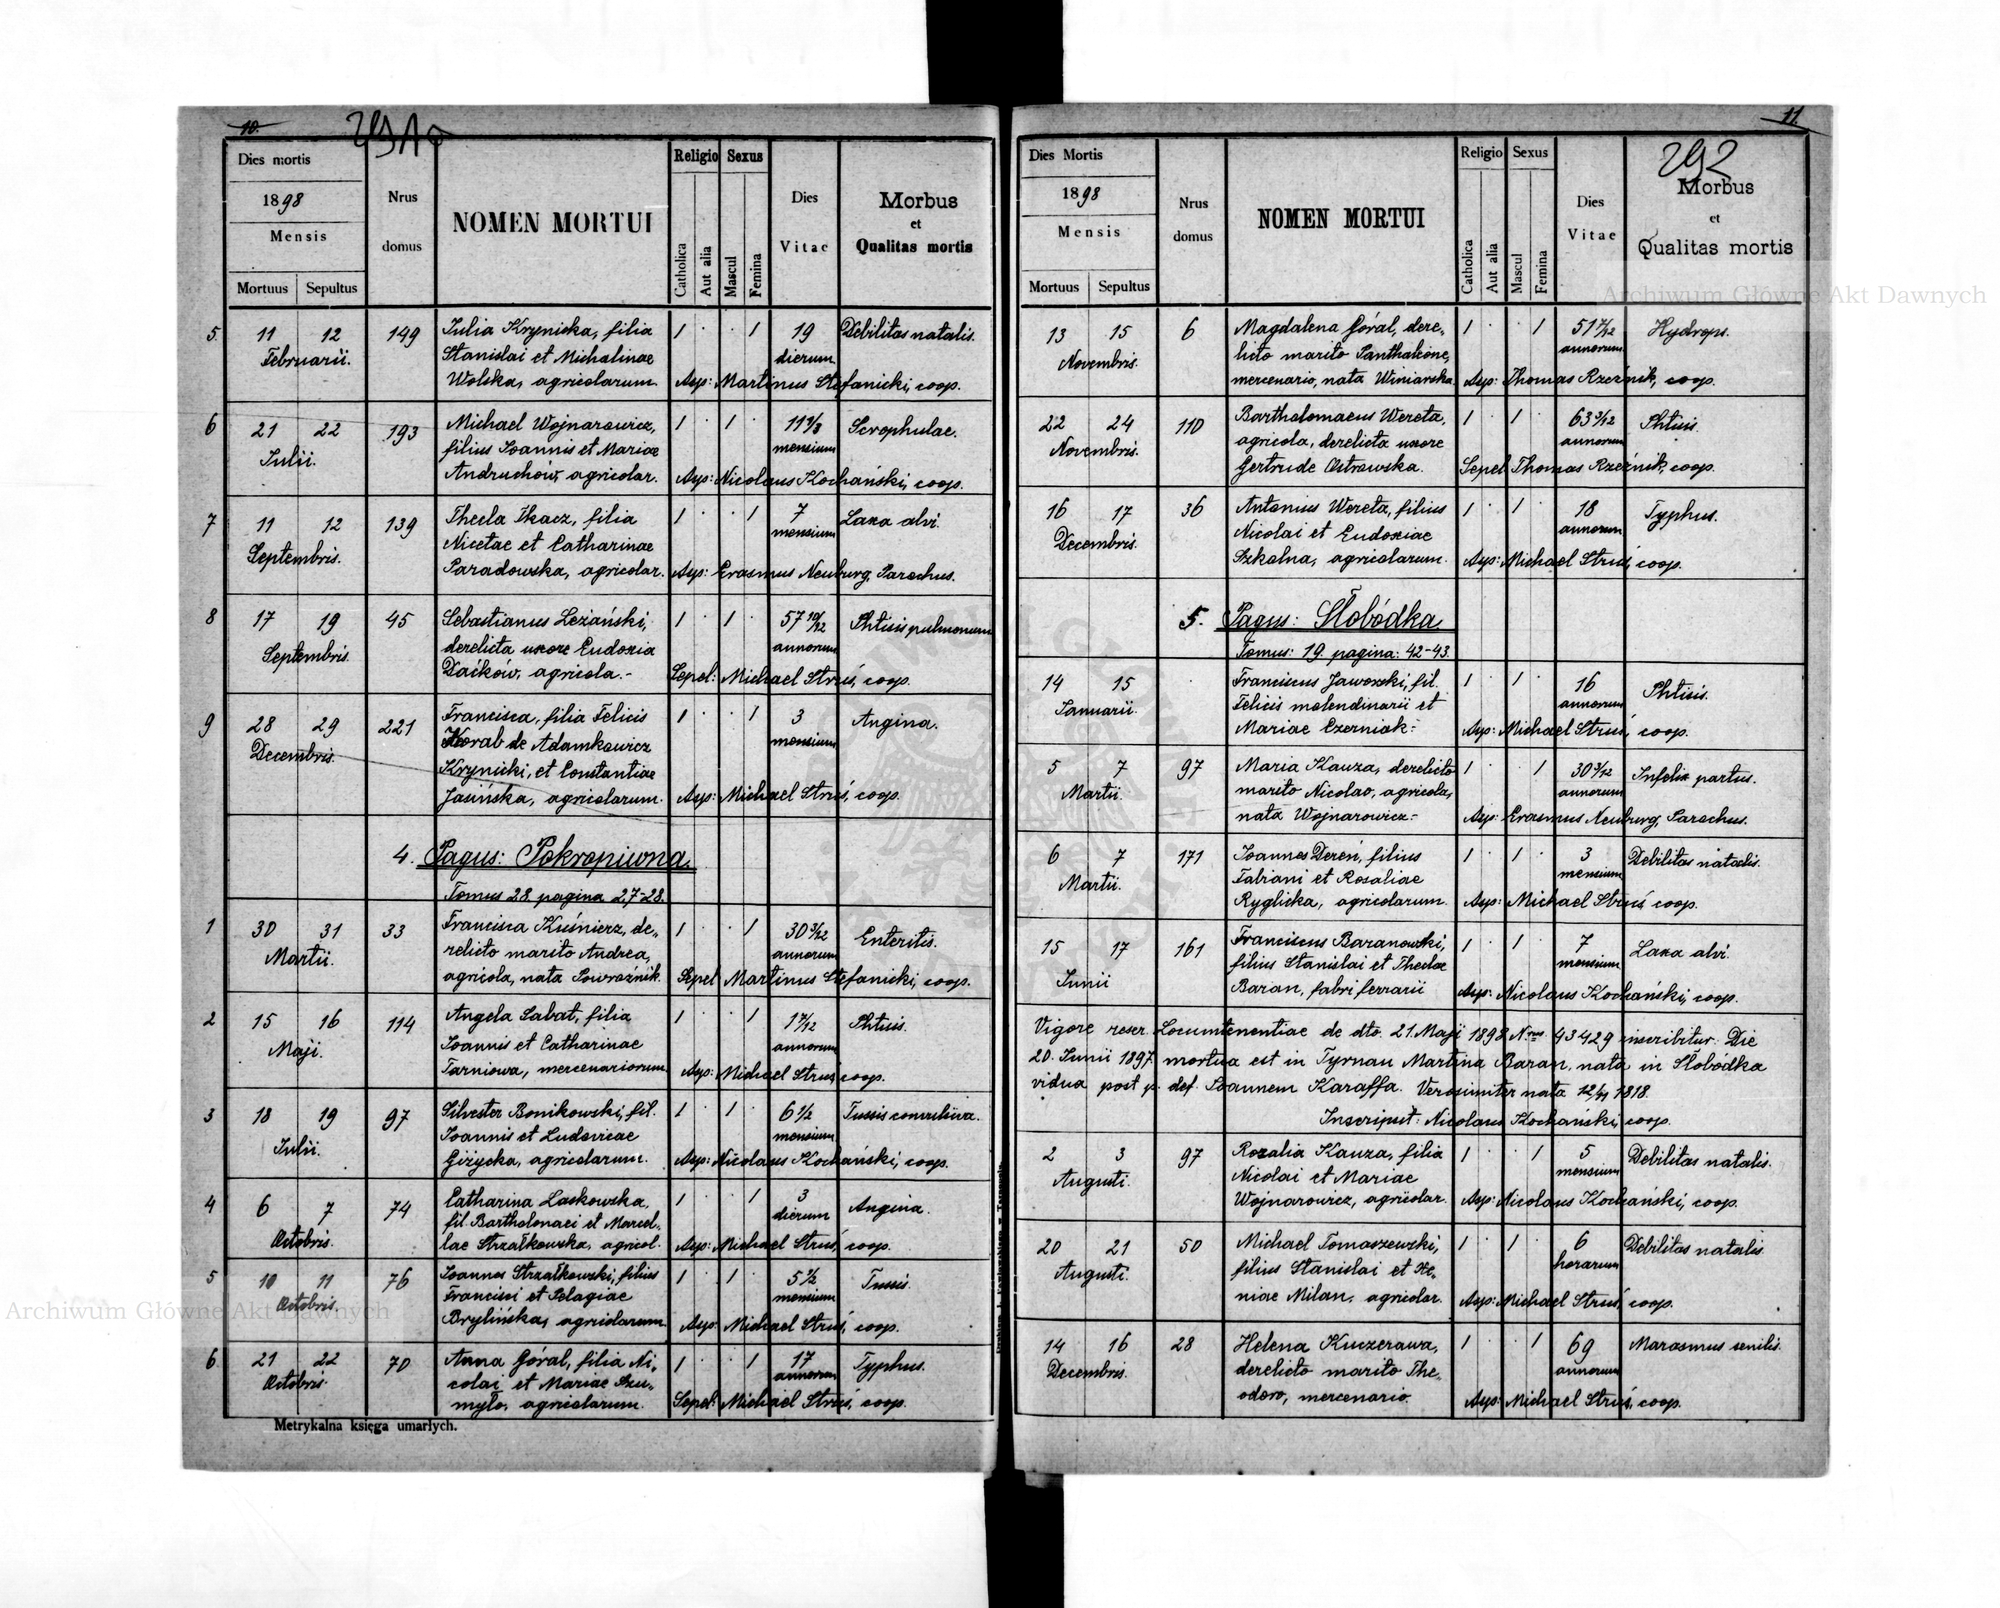 10.
291
Dies mortis
1898
Mensis
Mortuus Sepultus
Nrus
domus
NOMEN MORTUI
Religio
Catholica
Aut alia
Sexus
Mascul
Femina
Dies
Vitae
Morbus
et
Qualitas mortis
5. 11 12 149 Iulia Krynicka, filia 1 . . 1 19 Debilitas natalis.
Februarii. Stanislai et Michalinae dierum
Wolska, agricolarum. Asp: Martinus Stefanicki, coop.
6 21 22 193 Michael Wojnarowicz, 1 . 1 . 11 1/3 Scrophulae.
Iulii. filius Ioannis et Mariae mensium
Andruchów, agricolar. Asp: Nicolaus Kochański, coop.
7 11 12 139 Thecla Tkacz, filia 1 . . 1 7 Laxa alvi.
Septembris. Nicetae et Catharinae mensium
Paradowska, agricolar. Asp: Erasmus Neuburg Parochus.
8 17 19 45 Sebastianus Leżański, 1 . 1 . 57 10/12 Phtisis pulmonum
Septembris. derelicta uxore Eudoxia annorum
Daćków, agricola.- Sepel: Michael Struś, coop.
9 28 29 221 Francisca, filia Felicis 1 . . 1 3 Angina.
Decembris. Korab de Adamkowicz mensium
Krynicki, et Constantiae
Jasińska, agricolarum. Asp: Michael Struś, coop.
4. Pagus: Pokropiwna.
Tomus 28 pagina 27-28.
1 30 31 33 Francisca Kuśnierz, de- 1 . . 1 30 3/12 Enteritis.
Martii. relicto marito Andrea, annorum
agricola, nata Powroźnik. Sepel Martinus Stefanicki, coop.
2 15 16 114 Angela Sabat, filia 1 . . 1 Phtisis.
Maji. Ioannis et Catharinae annorum
Tarniowa, mercenariorum Asp: Michael Struś coop.
3 18 19 97 Silvester Bonikowski, fil. 1 . 1 . 6 1/2 Tussis convulsiva.
Iulii. Ioannis et Ludovicae mensium
Giżycka, agricolarum. Asp: Nicolaus Kochański, coop.
4 6 7 74 Catharina Laskowska, 1 . . 1 3 Angina.
Octobris. fil. Bartholomaei et Marcel- dierum
lae Strzałkowska, agricol. Asp: Michael Struś, coop.
5 10 11 76 Ioannes Strzałkowski, filius 1 . 1 . 5 1/2 Tussis.
Octobris. Francisci et Pelagiae mensium
Brylińska, agricolarum. Asp: Michael Struś, coop.
6. 21 22 70 Anna Góral, filia Ni- 1 . . 1 17 Typhus.
Octobris. colai et Mariae Szu- annorum
myło, agricolarum. Sepel: Michael Struś, coop.
Metrykalna księga umarłych.
11.
292
Dies Mortis
1898
Mensis
Mortuus Sepultus
Nrus
domus
NOMEN MORTUI
Religio
Catholica
Aut alia
Sexus
Mascul
Femina
Dies
Vitae
Morbus
et
Qualitas mortis
13 15 6 Magdalena Góral, dere- 1 . . 1 51 7/12 Hydrops.
Novembris. licto marito Panthaleone, annorum
mercenario, nata Winiarska. Asp: Thomas Rzeźnik, coop.
22 24 110 Bartholomaeus Wereta, 1 . 1 . 63 3/12 Phtisis.
Novembris. agricola, derelicta uxore annorum
Gertrude Ostrowska. Sepel Thomas Rzeźnik, coop.
16 17 36 Antonius Wereta, filius 1 . 1 . 18 Typhus.
Decembris. Nicolai et Eudoxiae annorum
Szkolna, agricolarum. Asp: Michael Struś, coop.
5. Pagus: Słobódka
Tomus: 19. pagina: 42-43.
14 15 . Franciscus Jaworski, fil. 1 . 1 . 16 Phtisis.
Ianuarii. Felicis molendinarii et annorum
Mariae Czerniak.- Asp: Michael Struś, coop.
5 7 97 Maria Kauza, derelicto 1 . . 1 30 3/12 Infelix partus.
Martii. marito Nicolao, agricola, annorum
nata Wojnarowicz.- Asp: Erasmus Neuburg, Parochus.
6 7 171 Ioannes Dereń, filius 1 . 1 . 3 Debilitas natalis.
Martii. Fabiani et Rosaliae mensium
Ryglicka, agricolarum. Asp: Michael Struś coop.
15 17 161 Franciscus Baranowski, 1 . 1 . 7 Laxa alvi.
Iunii filius Stanislai et Theclae mensium
Baran, fabri ferrarii Asp: Nicolaus Kochański, coop.
Vigore rescr. Locumtenentiae de dto. 21. Maji 1898 Nrus 43429 inscribitur: Die
20. Iunii 1897. mortua est in Tyrnau Martina Baran, nata in Słobódka
vidua post p. def. Ioannem Karaffa. Verosimiter nata 12/11 1818.
Inscripsit: Nicolaus Kochański, coop.
2 3 97 Rozalia Kauza, filia 1 . . 1 5 Debilitas natalis.
Augusti. Nicolai et Mariae mensium
Wojnarowicz, agricolar. Asp: Nicolaus Kochański, coop.
20 21 50 Michael Tomaszewski, 1 . 1 . 6 Debilitas natalis.
Augusti. filius Stanislai et Xe- horarum
niae Milan, agricolar. Asp: Michael Struś, coop.
14 16 28 Helena Kuczerawa, 1 . . 1 69 Marasmus senilis.
Decembris. derelicto marito The- annorum
odoro, mercenario. Asp: Michael Struś, coop.
Archiwum Główne Akt Dawnych
Archiwum Główne Akt Dawnych